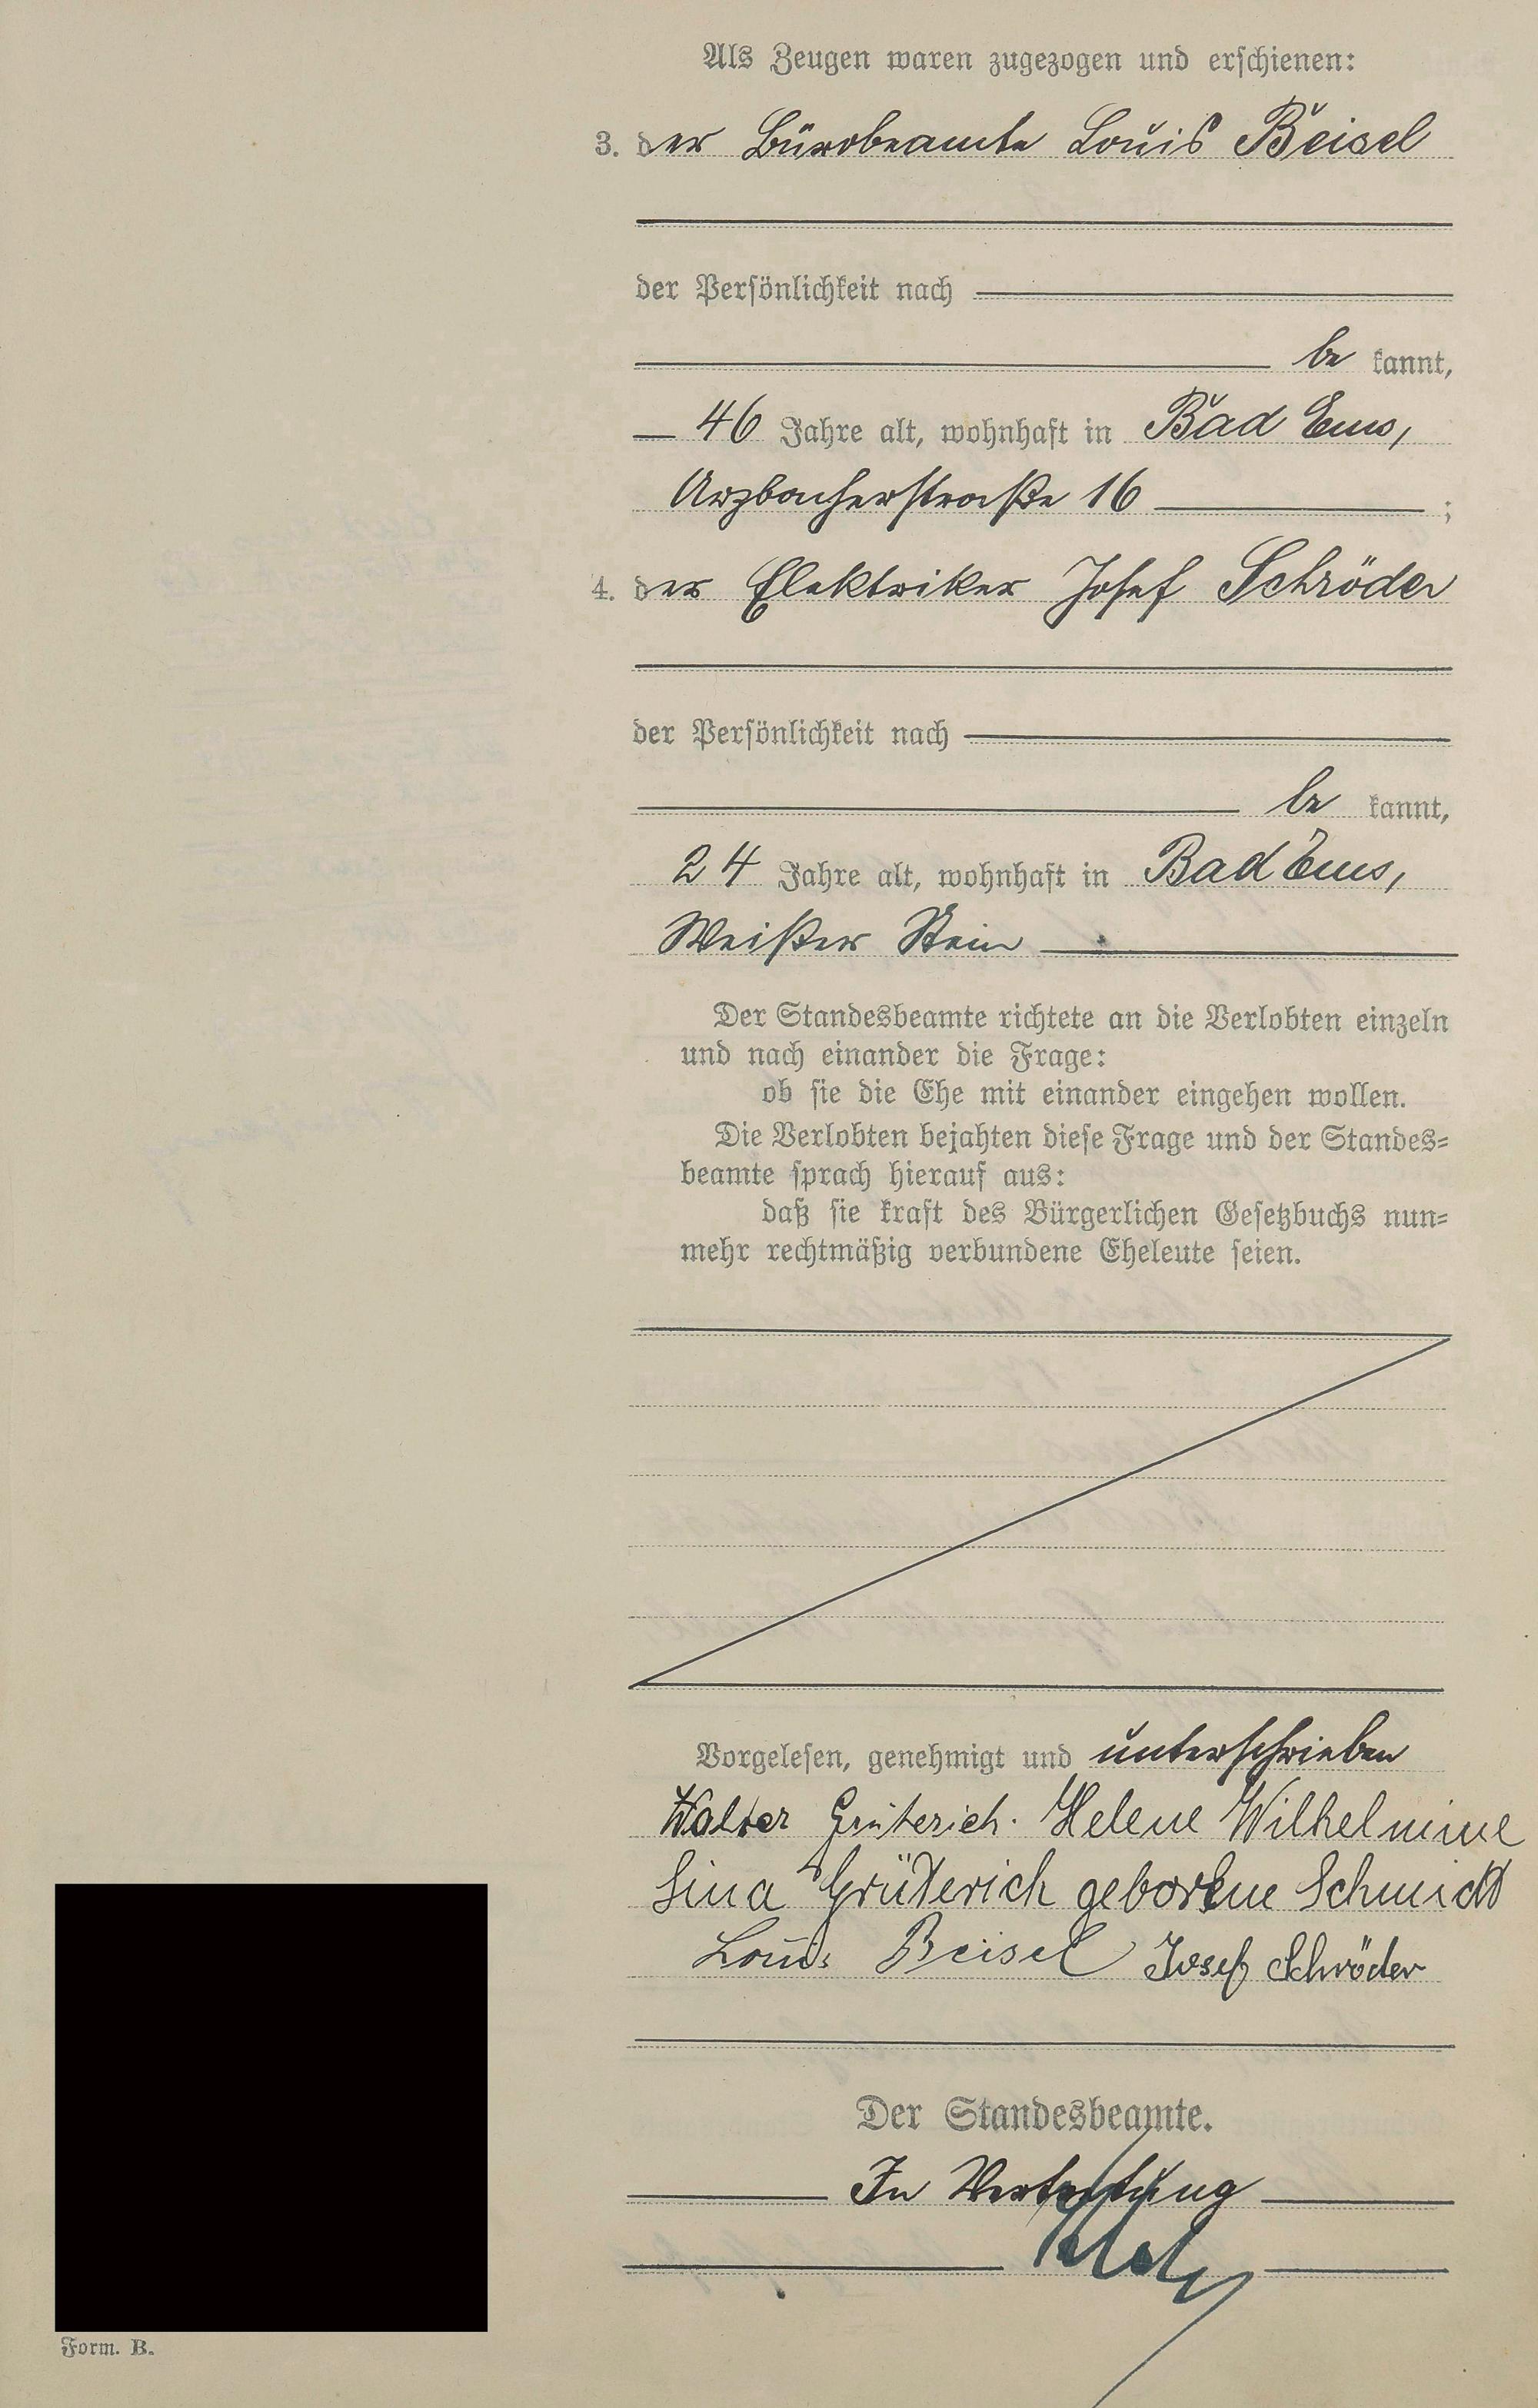 Als Zeugen waren zugezogen und erschienen:
3. der Bürobeamte Louis Beisel
der Persönlichkeit nach
be kannt,
46 Jahre alt, wohnhaft in Bad Ems,
Arzbacherstraße 16 ;
4. der Elektriker Josef Schröder
der Persönlichkeit nach
be kannt,
24 Jahre alt, wohnhaft in Bad Ems,
Weißer Stein
Der Standesbeamte richtete an die Verlobten einzeln
und nach einander die Frage:
ob sie die Ehe mit einander eingehen wollen.
Die Verlobten bejahten diese Frage und der Standes-
beamte sprach hierauf aus:
daß sie kraft des Bürgerlichen Gesetzbuchs nun-
mehr rechtmäßig verbundene Eheleute seien.
Vorgelesen, genehmigt und unterschrieben
Walter Grüterich. Helene Wilhelmine
Lina Grüterich geborene Schmidt
Louis Beisel Josef Schröder
Der Standesbeamte.
In Vertretung
Form. B.